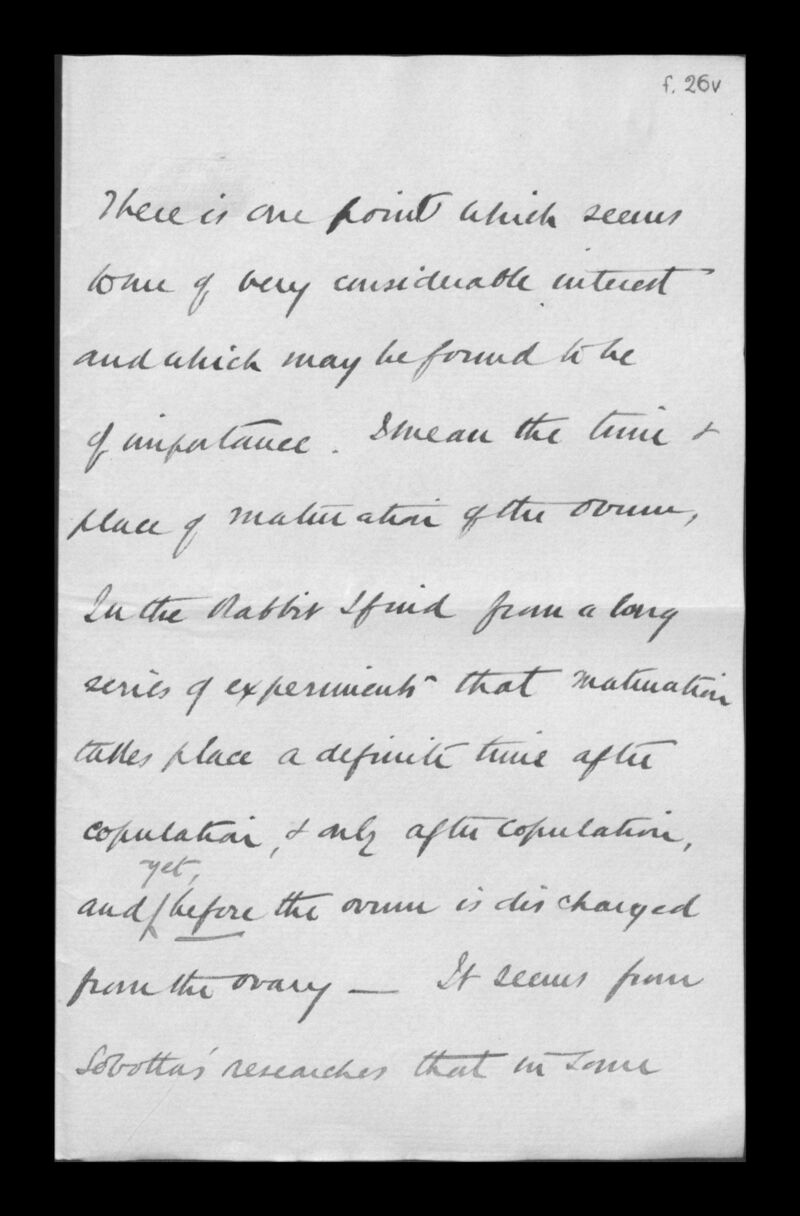 f. 26v
There is one point which seems
to me of very considerable interest
and which may be found to be
of importance. I mean the time &
place of maturation of the ovum,
In the Rabbit I find from a long
series of experiments that maturation
takes place a definite time after
copulation, & only after copulation,
yet,
and before the ovum is discharged
from the ovary — It seems from
Sobotta's researches that in some